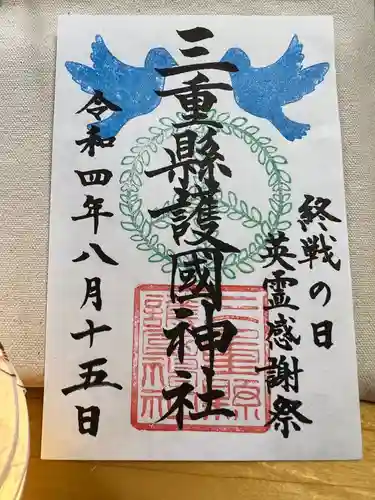 終戦の日
英霊感謝祭
三重縣護國神社
令和四年八月十五日